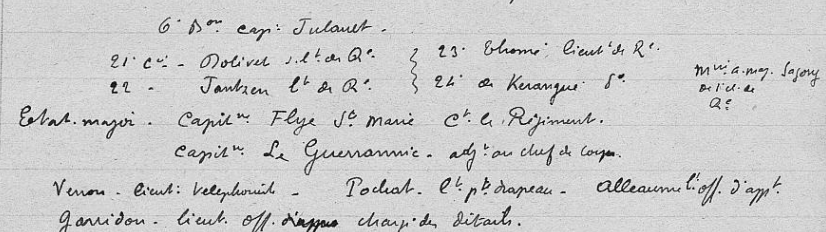 6e Bon capne Julauet.
21e Cie - Bolivet s.lt de Re. } 23e Thomé, lieutt de Re.
22 - Jantzen lt de Re. } 24e de Kerangué do. Mcin a.maj. Sagory
de Re
Etat-major. Capitne Flye Ste Marie Ct le Régiment.
Capitne Le Guerrannic - adjt au chef de corps.
Venon - lieut. téléphonist - Pochat - lt pte drapeau - Alleaume lt off. d'appt.
Garridon - lieut. off. chargé des détails.